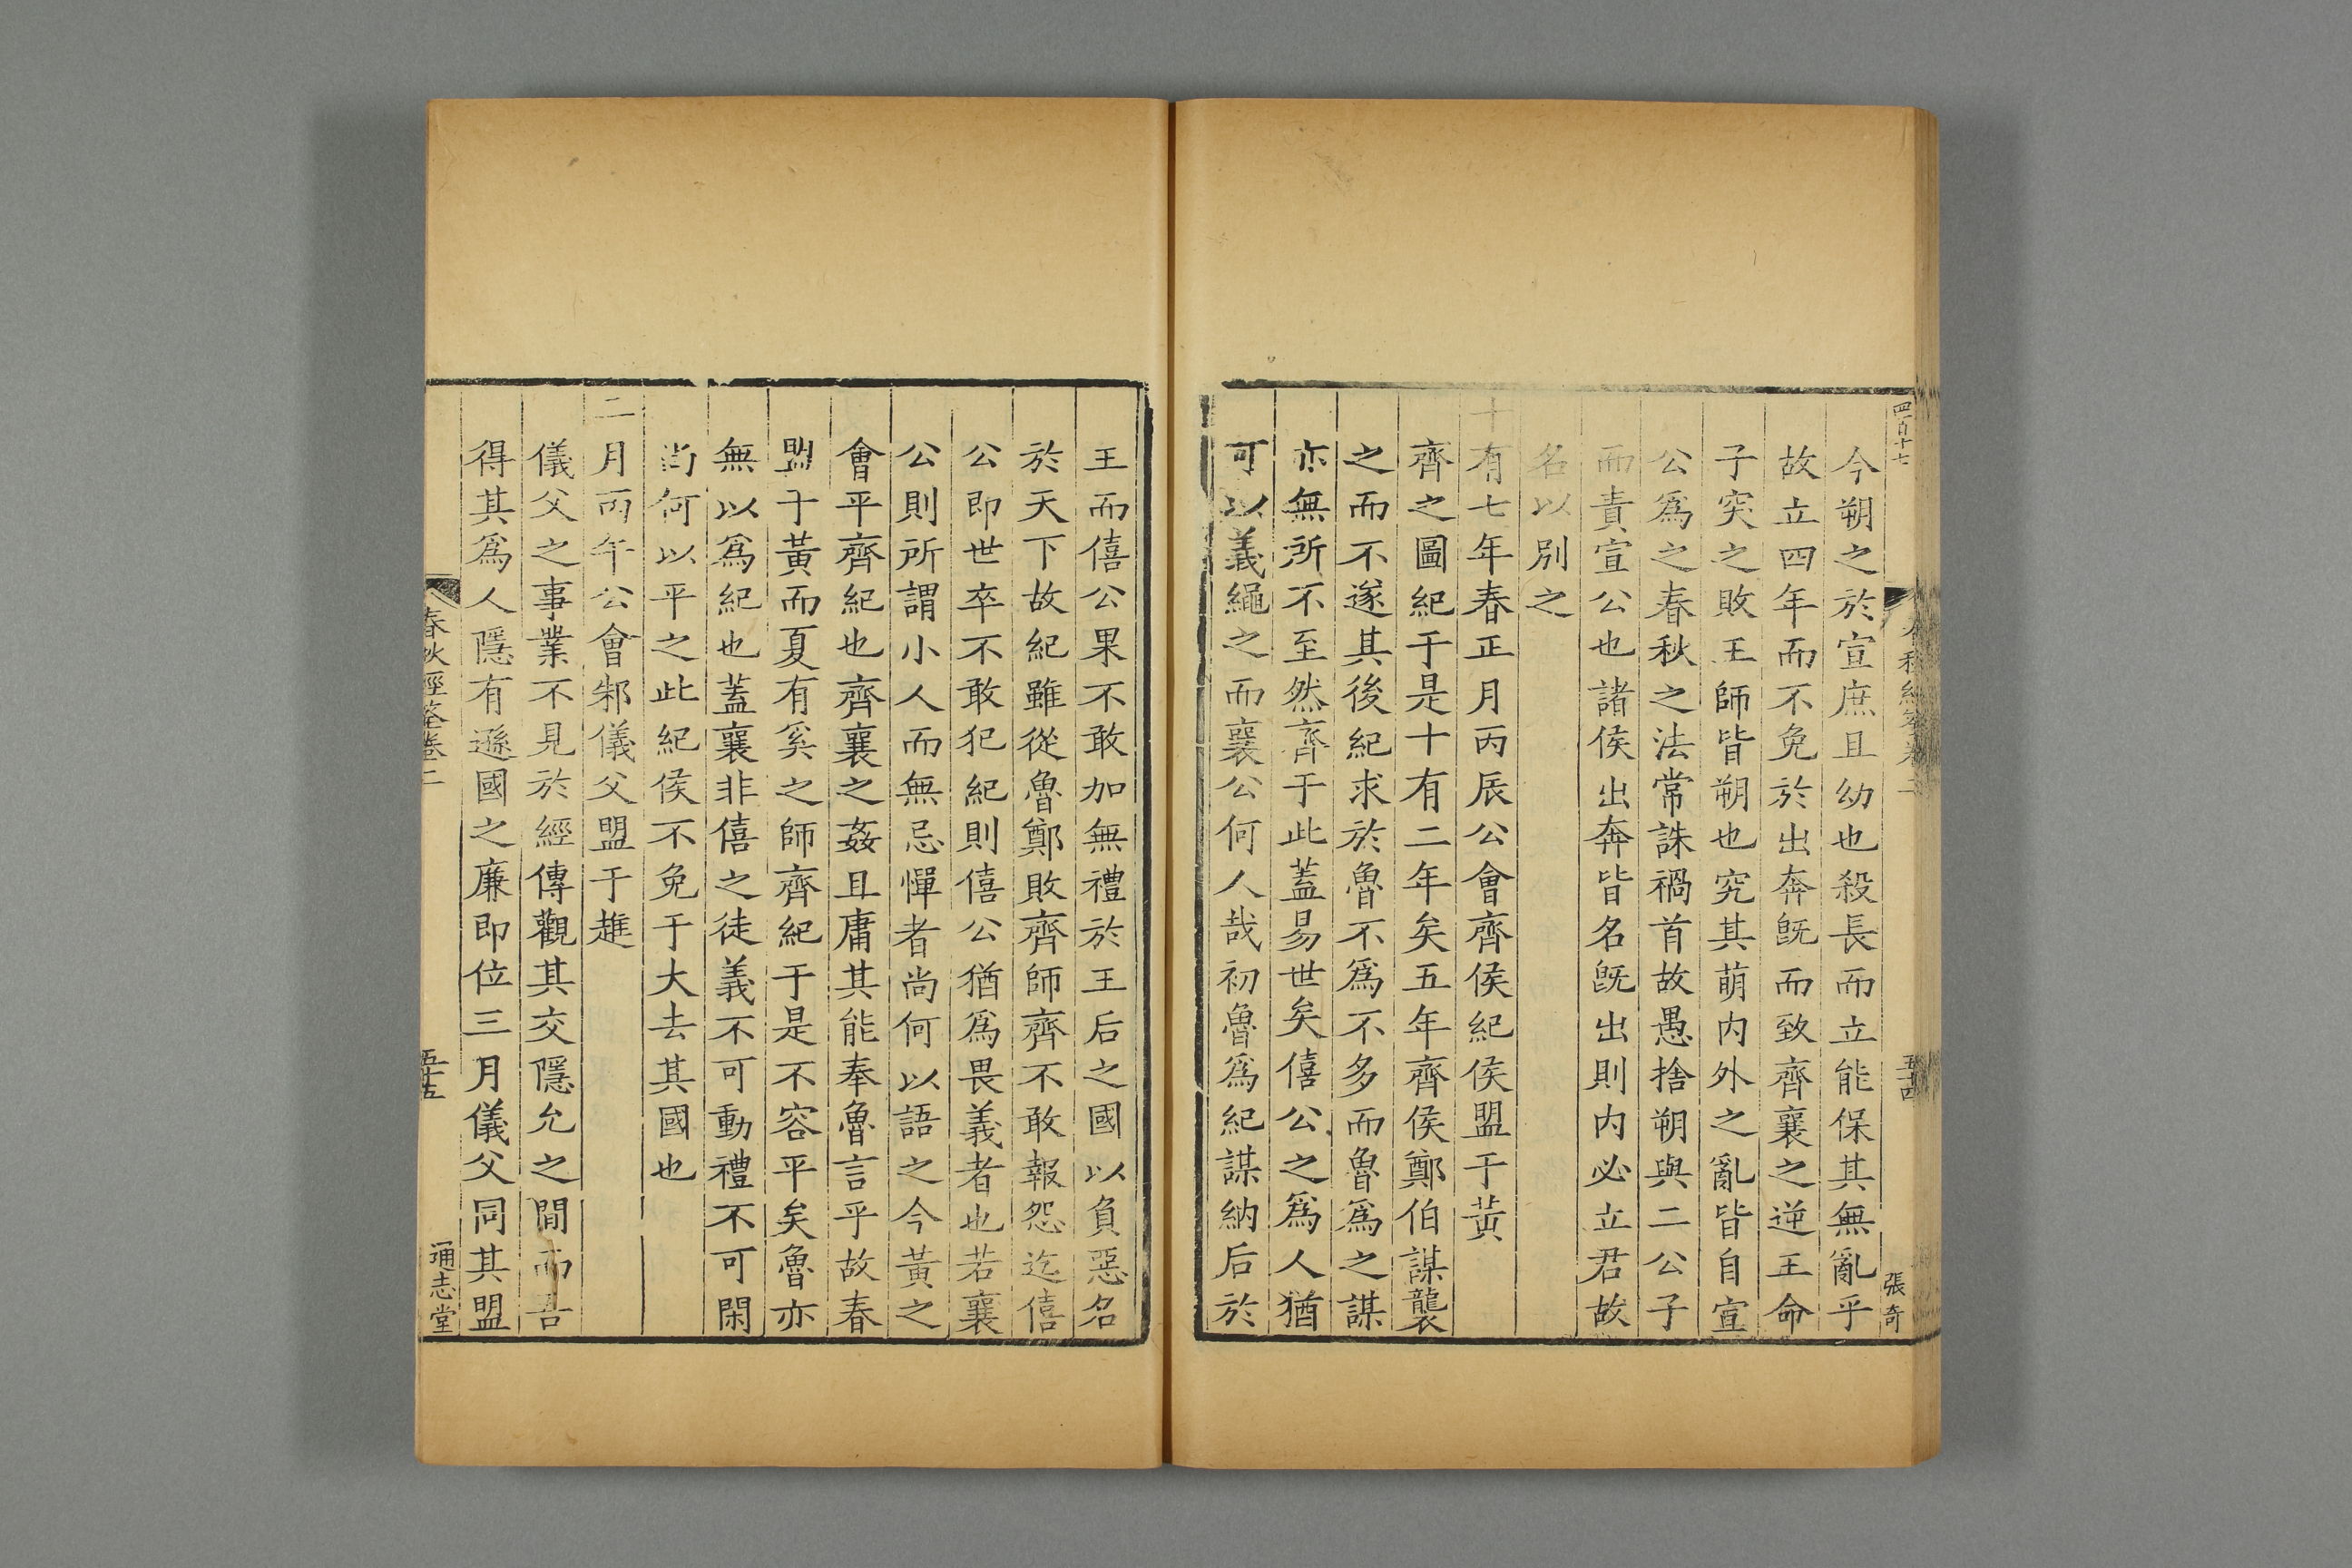 四百十七
五十四
張奇
今朔之於宣庶且幼也殺長而立能保其無亂乎
故立四年而不免於出奔旣而致齊襄之逆王命
子突之敗王師皆朔也究其萌内外之亂皆自宣
公爲之春秋之法常誅禍首故愚捨朔與二公子
而責宣公也諸侯出奔皆名旣出則内必立君故
名以别之
十有七年春正月丙辰公會齊侯紀侯盟于黃
齊之圖紀于是十有二年矣五年齊侯鄭伯謀襲
之而不遂其後紀求於魯不爲不多而魯爲之謀
亦無所不至然齊于此蓋易世矣僖公之爲人猶
可以義繩之而襄公何人哉初魯爲紀謀納后於
王而僖公果不敢加無禮於王后之國以負惡名
於天下故紀雖從魯鄭敗齊師齊不敢報怨迄僖
公即世卒不敢犯紀則僖公猶爲畏義者也若襄
公則所謂小人而無忌憚者尚何以語之今黃之
會平齊紀也齊襄之姦且庸其能奉魯言乎故春
盟于黃而夏有奚之師齊紀于是不容平矣魯亦
無以爲紀也蓋襄非僖之徒義不可動禮不可閑
尚何以平之此紀侯不免于大去其國也
二月丙午公會邾儀父盟于趡
儀父之事業不見於經傳觀其交隱允之間而吾
得其爲人隱有遜國之廉即位三月儀父同其盟
春秋經筌卷二
五十五
通志堂